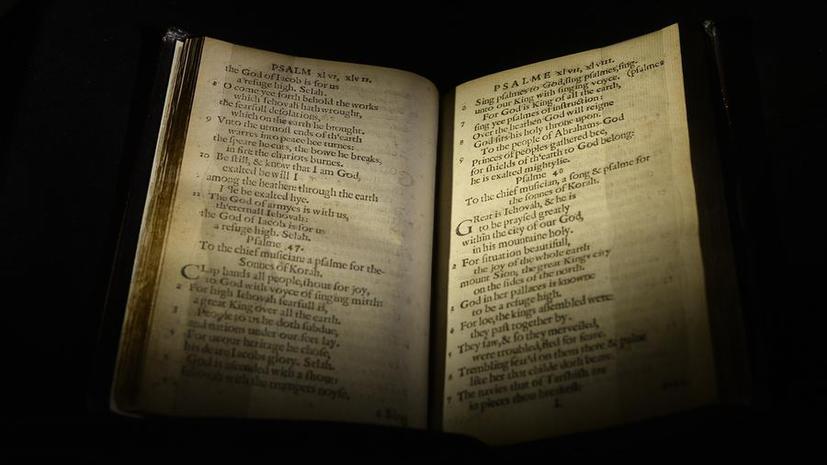 PSALM xlvi, xlvii.
the God of Iacob is for us
a refuge high. Selah.
8 O come yee forth behold the works
which Iehovah hath wrought,
the fearfull desolations,
which on the earth he brought.
9 Vnto the utmost ends of th'earth
warres into peace hee turnes:
the speare he cuts, the bowe he breaks,
in fire the chariots burnes.
10 Be still, & know that I am God,
exalted be will I
among the heathen: through the earth
I'le be exalted hye.
11 The God of armyes is with us,
th'eternall Iehovah:
the God of Iacob is for us
a refuge high. Selah.
Psalme 47.
To the chief musician: a psalme for the
Sonnes of Korah.
CLap hands all people, shout for joy,
to God with voyce of singing mirth:
2 For high Iehovah fearfull is,
a great King over all the earth.
3 People to us he doth subdue,
and nations under our feet lay.
4 For us our heritage he chose,
his deare Iacobs glory. Selah.
5 God is ascended with a shout:
Iehovah with the trumpets noyse.
PSALME xlvii, xlviii.
6 Sing psalmes to God, sing psalmes, sing
(psalmes
unto our King with singing voyce.
7 For God is King of all the earth,
sing yee psalmes of instruction:
8 Over the heathen God will reigne
God sits his holy throne upon.
9 To the people of Abrahams God
Princes of peoples gathered bee,
for shields of th'earth to God belong:
he is exalted mightylie.
Psalme 48
To the chief musician, a song & psalme for
the sonnes of Korah.
GReat is Iehovah, & he is
to be praysed greatly
within the city of our God,
in his mountaine holy.
2 For situation beautifull,
the joy of the whole earth
mount Sion; the great Kings city
on the sides of the north.
3 God in her pallaces is knowne
to be a refuge high.
4 For loe, the kings assembled were:
they past together by.
5 They saw, & so they merveiled,
were troubled, fled for feare.
6 Trembling seiz'd on them there & paine
like her that childe doth beare.
7 The navies that of Tarshish are
in pieces thou breakest: